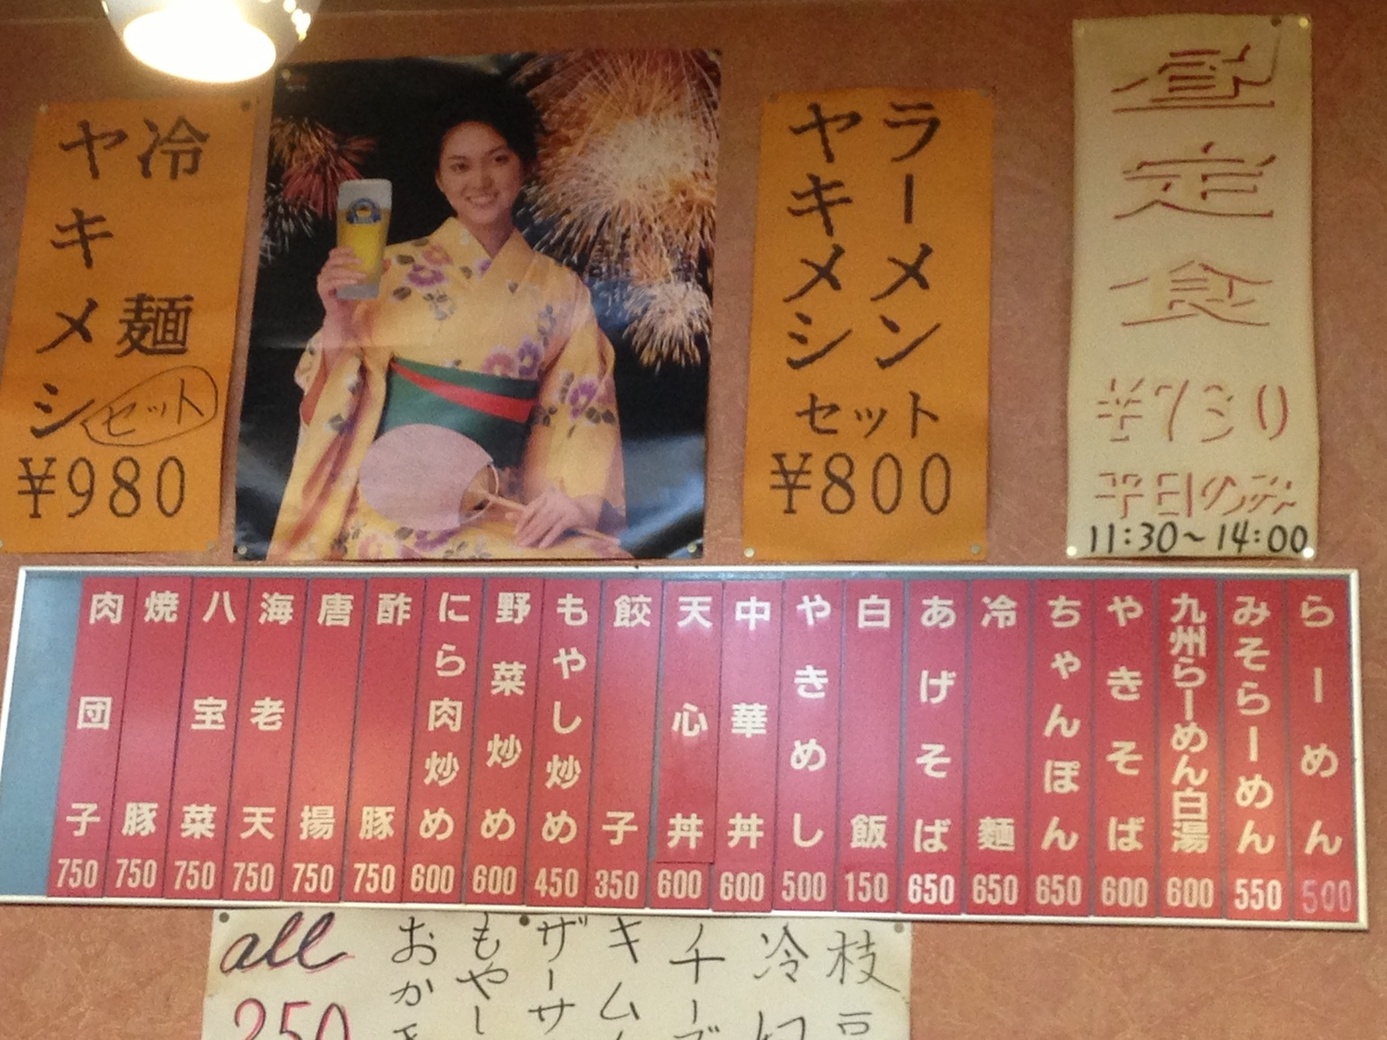 冷麺
ヤキメシ
セット
¥980
ラーメン
ヤキメシ
セット
¥800
昼定食
¥730
平日のみ
11:30~14:00
らーめん 500
みそらーめん 550
九州らーめん白湯 600
やきそば 600
ちゃんぽん 650
冷麺 650
あげそば 650
白飯 150
やきめし 500
中華丼 600
天心丼 600
餃子 350
もやし炒め 450
野菜炒め 600
にら肉炒め 600
酢豚 750
唐揚 750
海老天 750
八宝菜 750
焼豚 750
肉団子 750
枝豆
冷
チーズ
キム
ザーサ
もやし
おか
all
250